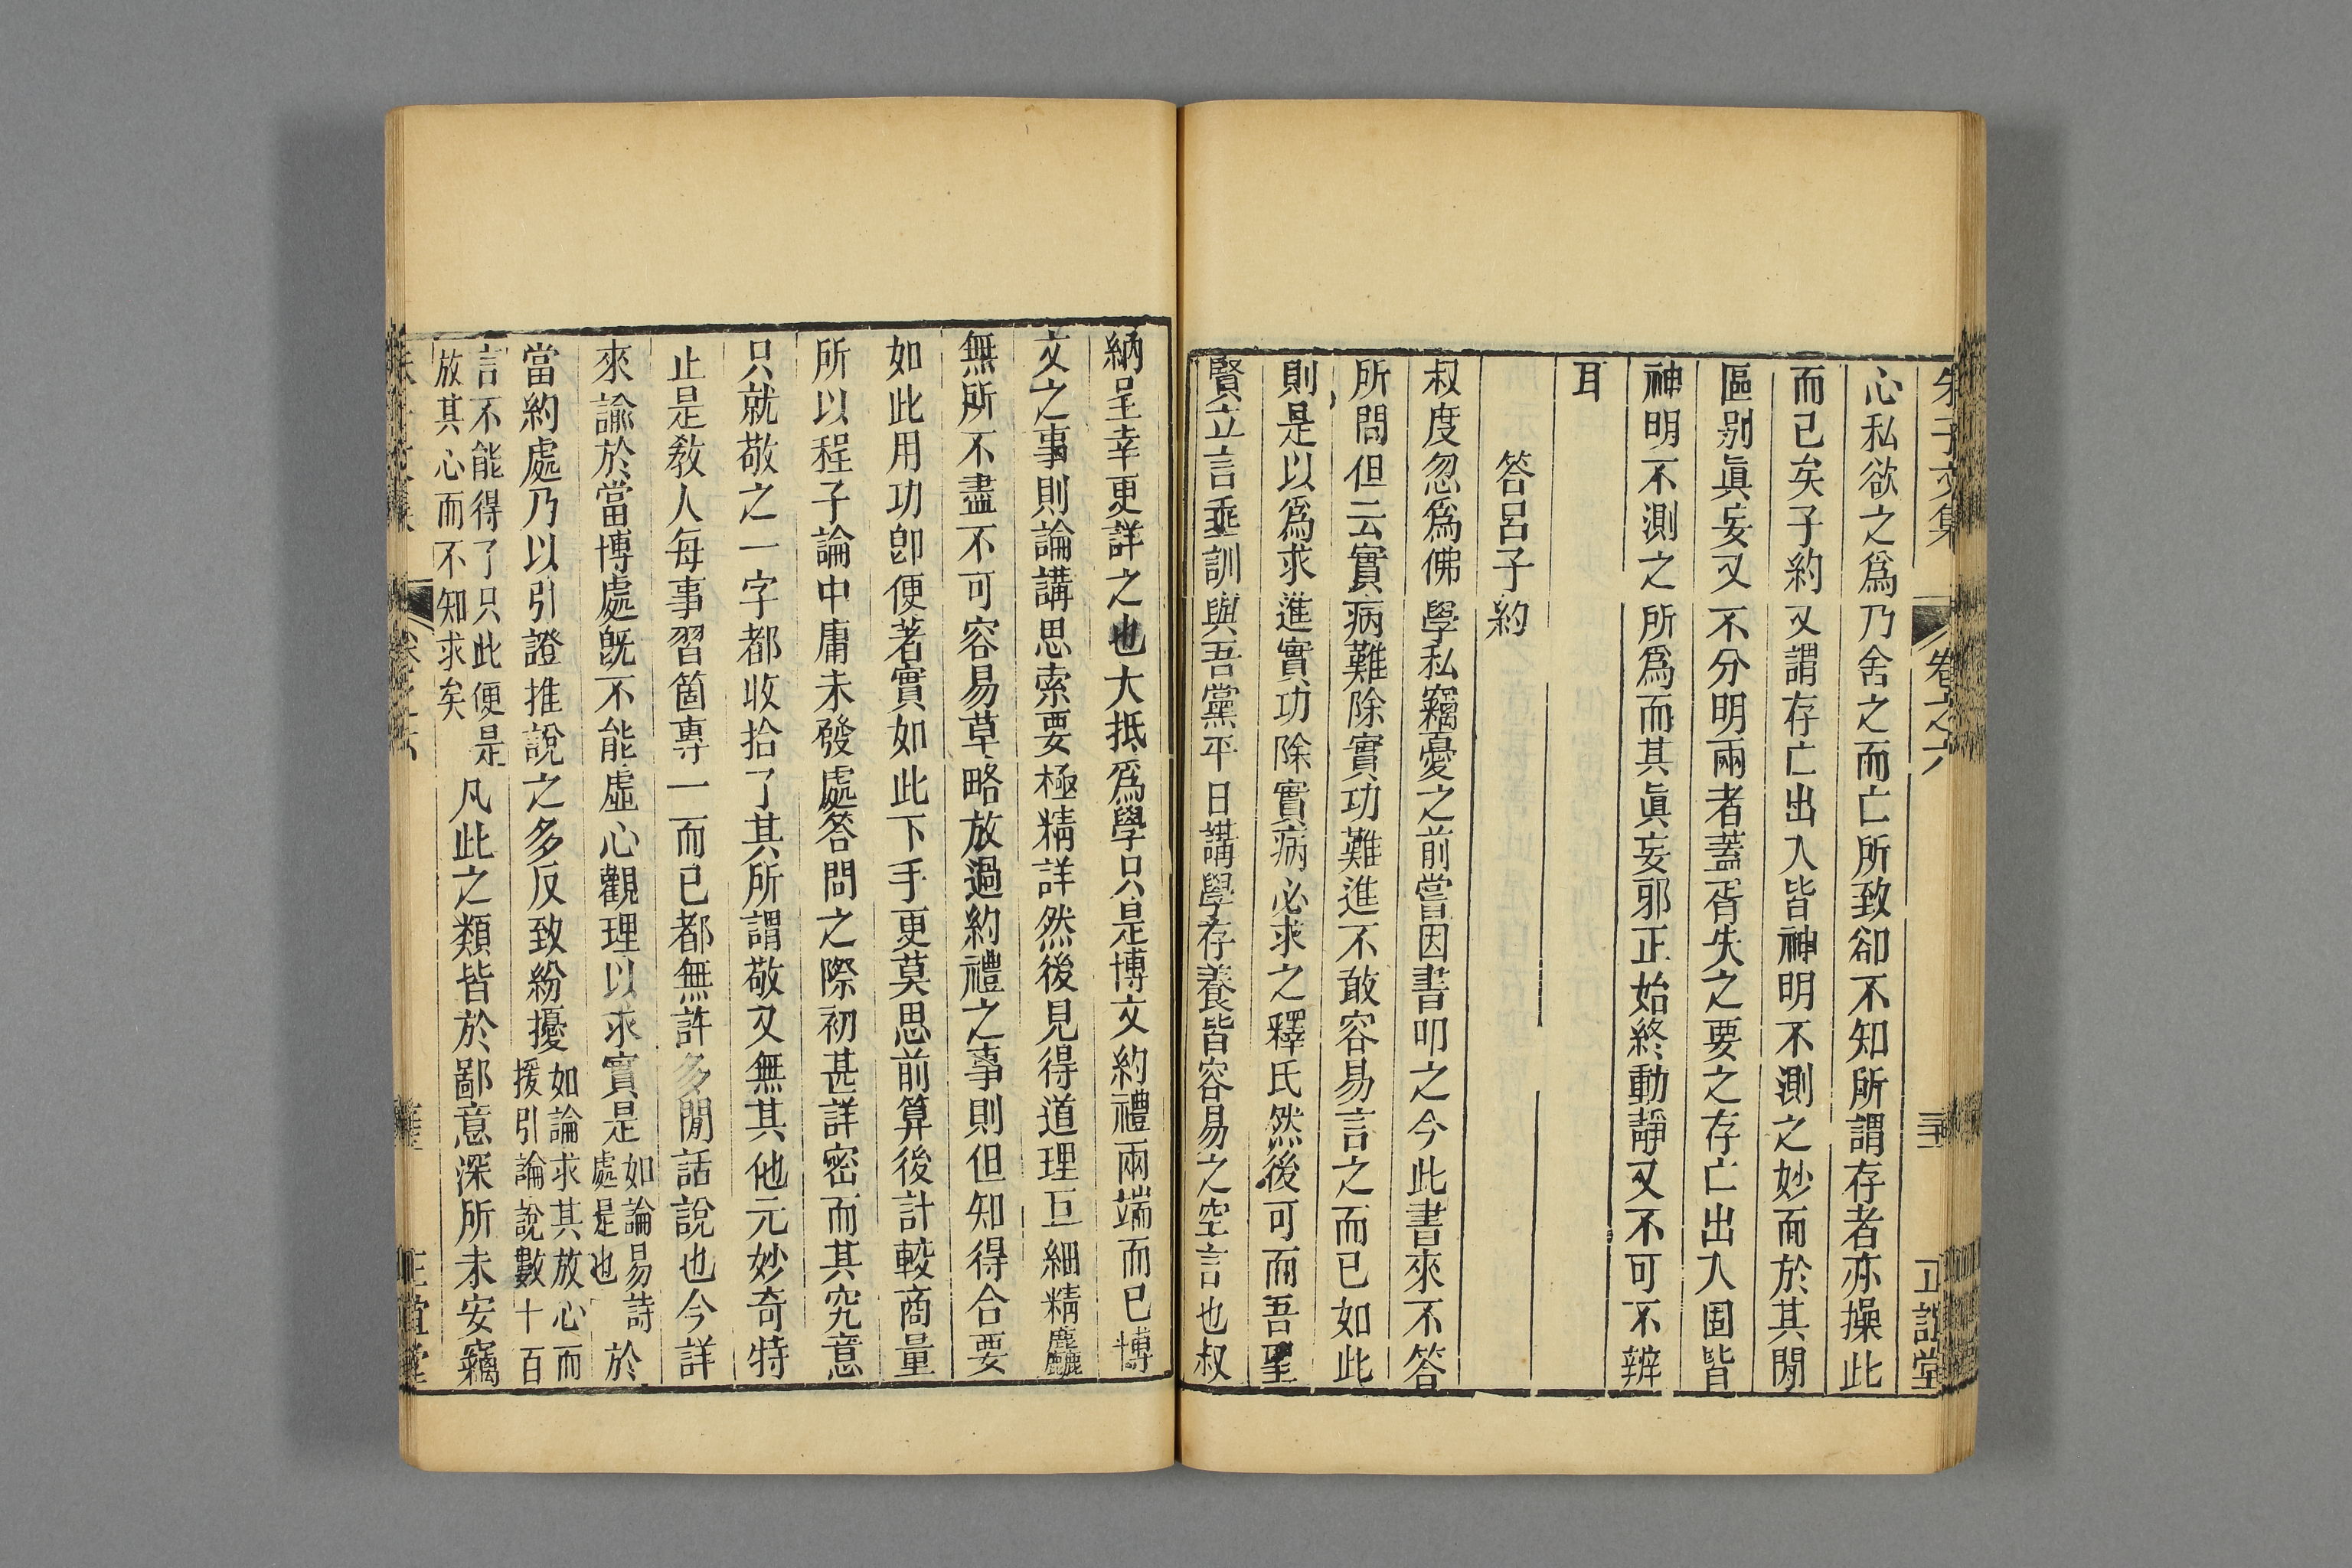 朱子文集 卷之六 正誼堂
心私欲之爲乃舍之而亡所致卻不知所謂存者亦操此
而已矣子約又謂存亡出入皆神明不測之妙而於其閒
區别眞妄又不分明兩者蓋胥失之要之存亡出入固皆
神明不測之所爲而其眞妄邪正始終動靜又不可不辨
耳
答呂子約
叔度忽爲佛學私竊憂之前嘗因書叩之今此書來不答
所問但云實病難除實功難進不敢容易言之而已如此
則是以爲求進實功除實病必求之釋氏然後可而吾聖
賢立言垂訓與吾黨平日講學存養皆容易之空言也叔
納呈幸更詳之也大抵爲學只是博文約禮兩端而已博
文之事則論講思索要極精詳然後見得道理巨細精麤
無所不盡不可容易草略放過約禮之事則但知得合要
如此用功卽便著實如此下手更莫思前算後計較商量
所以程子論中庸未發處答問之際初甚詳密而其究意
只就敬之一字都收拾了其所謂敬又無其他元妙奇特
止是敎人每事習箇專一而已都無許多閒話說也今詳
來諭於當博處旣不能虛心觀理以求實是如論易詩處是也於
當約處乃以引證推說之多反致紛擾如論求其放心而援引論說數十百
言不能得了只此便是放其心而不知求矣凡此之類皆於鄙意深所未安竊